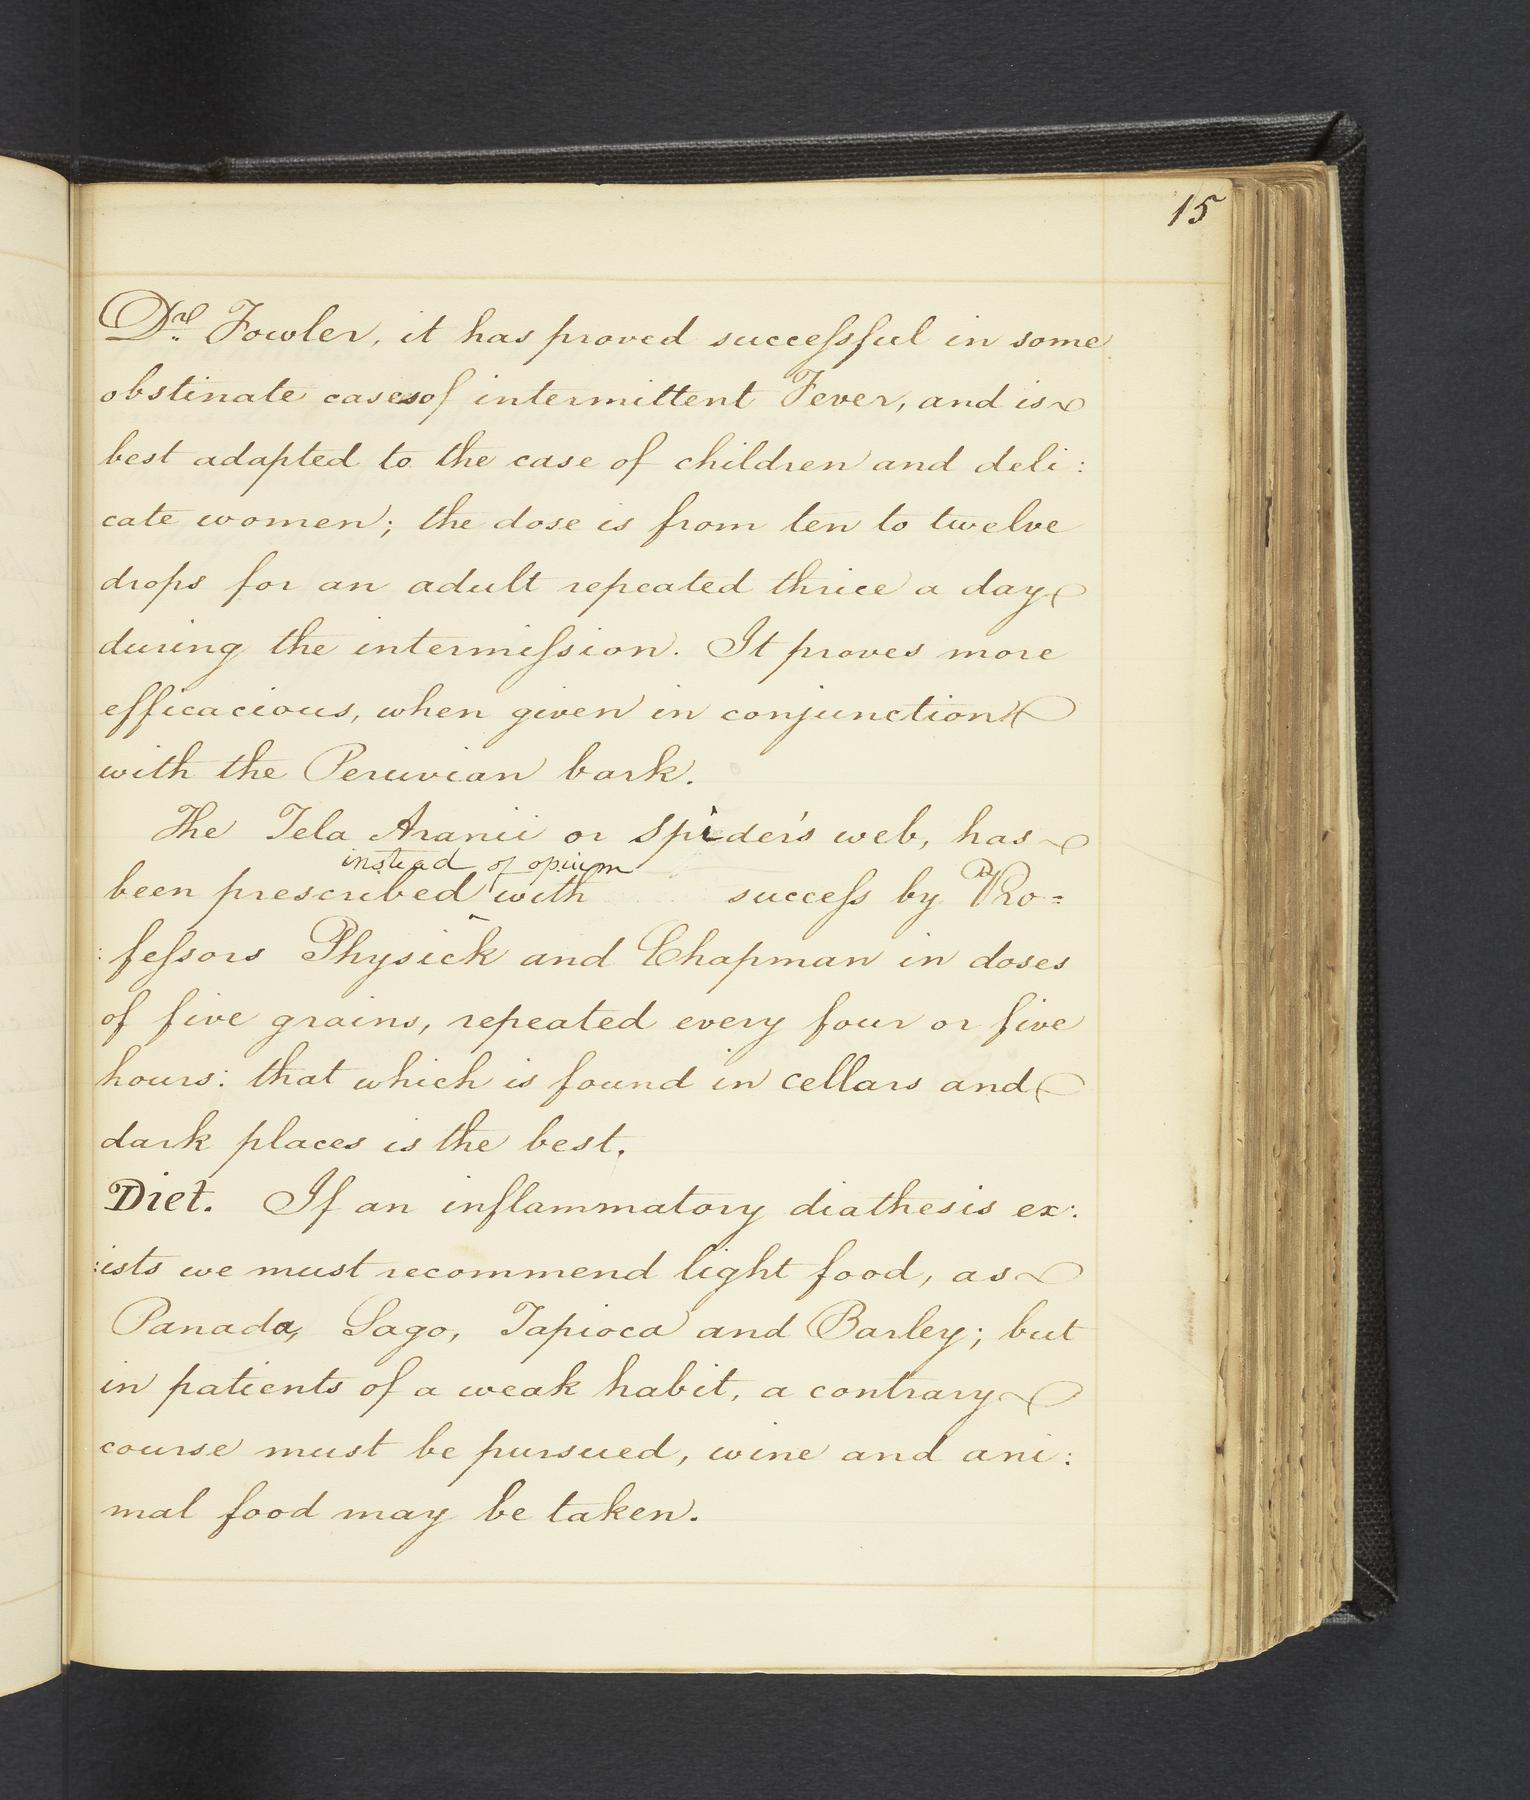 15
Dr. Fowler, it has proved successful in some
obstinate cases of intermittent Fever, and is
best adapted to the case of children and deli:
cate women; the dose is from ten to twelve
drops for an adult repeated thrice a day
during the intermission. It proves more
efficacious, when given in conjunction
with the Peruvian bark.
The Tela Aranii or Spider's web, has
instead of opium
been prescribed ‸ with success by Pro=
:fessors Physick and Chapman in doses
of five grains, repeated every four or five
hours: that which is found in cellars and
dark places is the best.
Diet. If an inflammatory diathesis ex:
:ists we must recommend light food, as
Panada, Sago, Tapioca and Barley; but
in patients of a weak habit, a contrary
course must be pursued, wine and ani:
mal food may be taken.